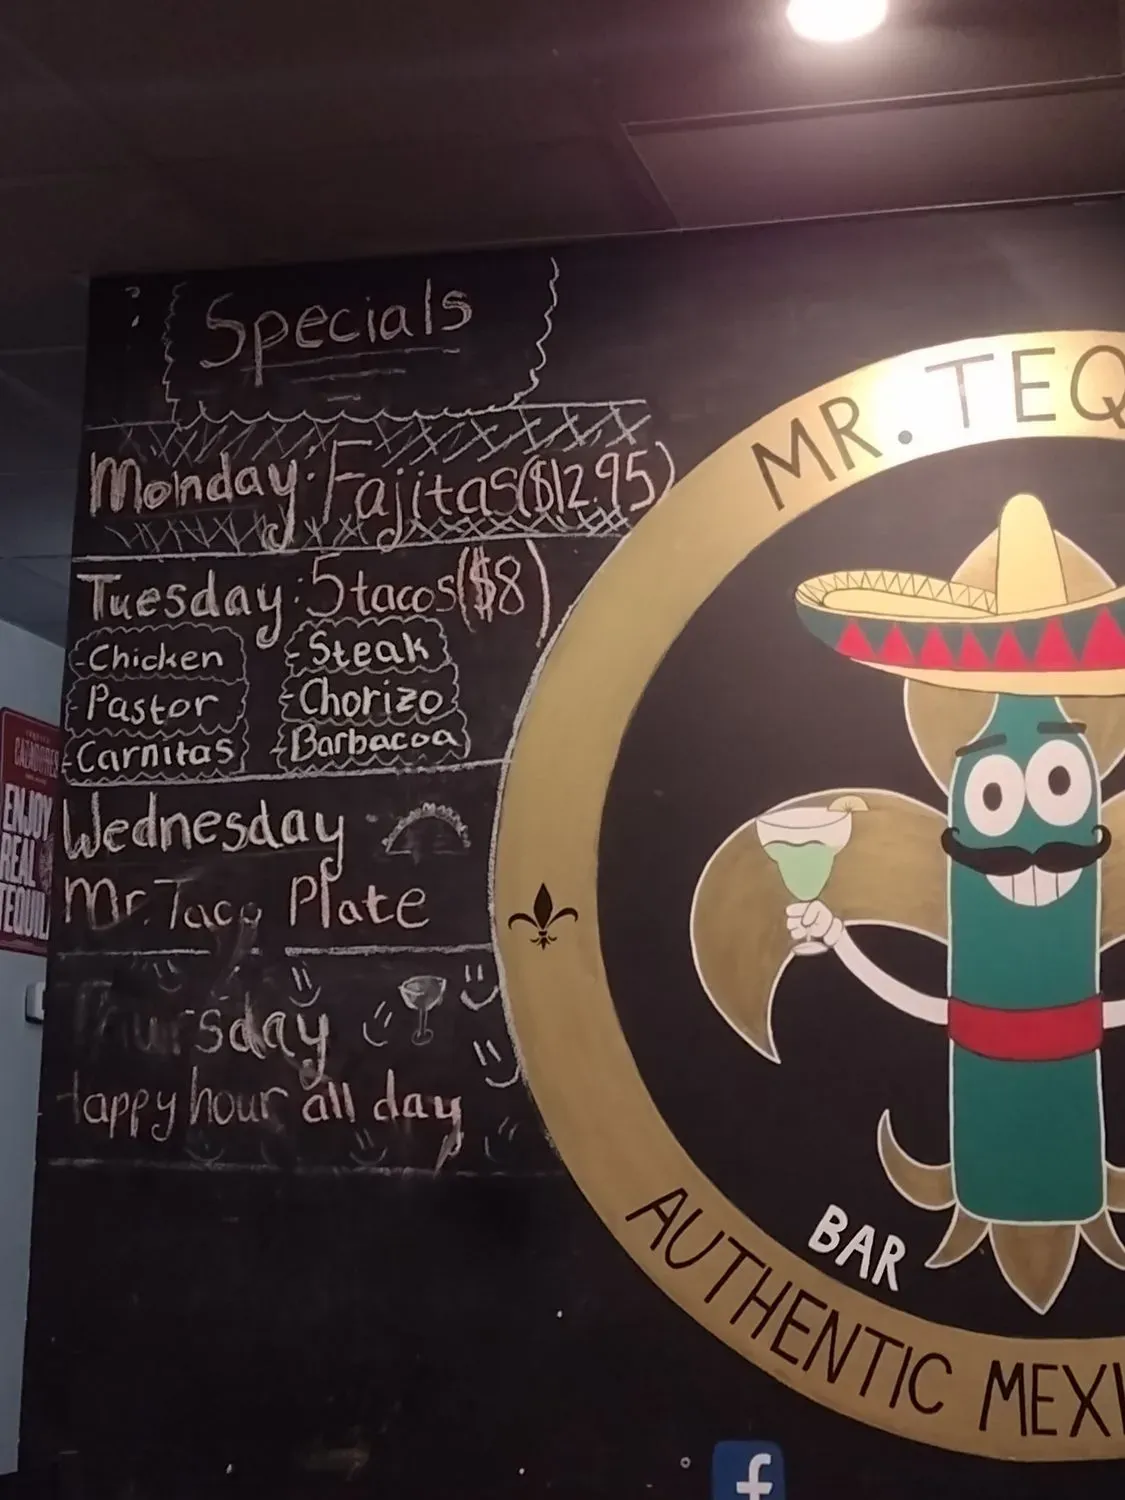 Specials
Monday: Fajitas ($12.95)
Tuesday: 5 tacos ($8)
-Chicken -Steak
-Pastor -Chorizo
-Carnitas -Barbacoa
Wednesday
Mr. Taco Plate
Thursday
Happy hour all day
MR. TEQ
BAR
AUTHENTIC MEXI
f
CAZADORES
ENJOY
REAL
TEQUIL